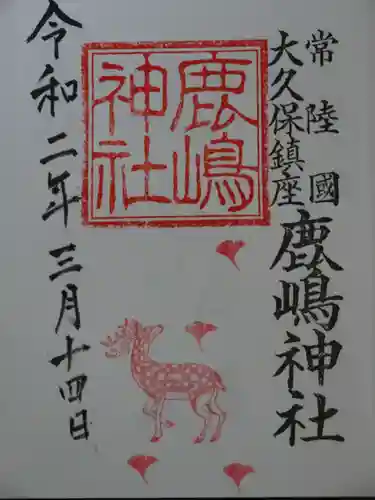 常陸國
大久保鎮座
鹿嶋神社
鹿嶋
神社
令和二年三月十四日